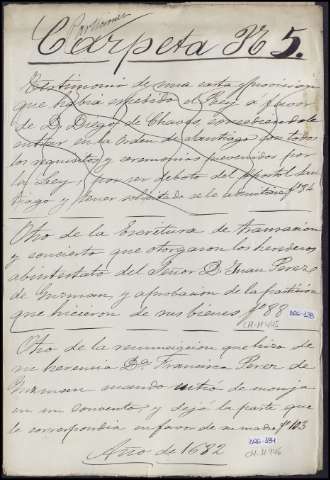 Carpeta N 5.
Testimonio de una carta provision
que habia espedido el Rey a favor
de D. Diego de Chaves, concediendole
entrar en la Orden de Santiago con todos
los requisitos y ceremonias prevenidas por
la Ley, por ser deboto del Apostol San
tiago y tener solicitado se le admitiera fº 34
Otro de la Escritura de transacion
y concierto que otorgaron los herederos
abintestato del Señor D. Juan Perez
de Guzman, y aprobacion de la particion
que hicieron de sus bienes fº 88
Otro de la renunciacion que hizo de
su herencia Dª Francisca Perez de
Guzman cuando entró de monja
en un convento, y deja la parte que
le correspondia en favor de su madre fº 103
Año de 1682